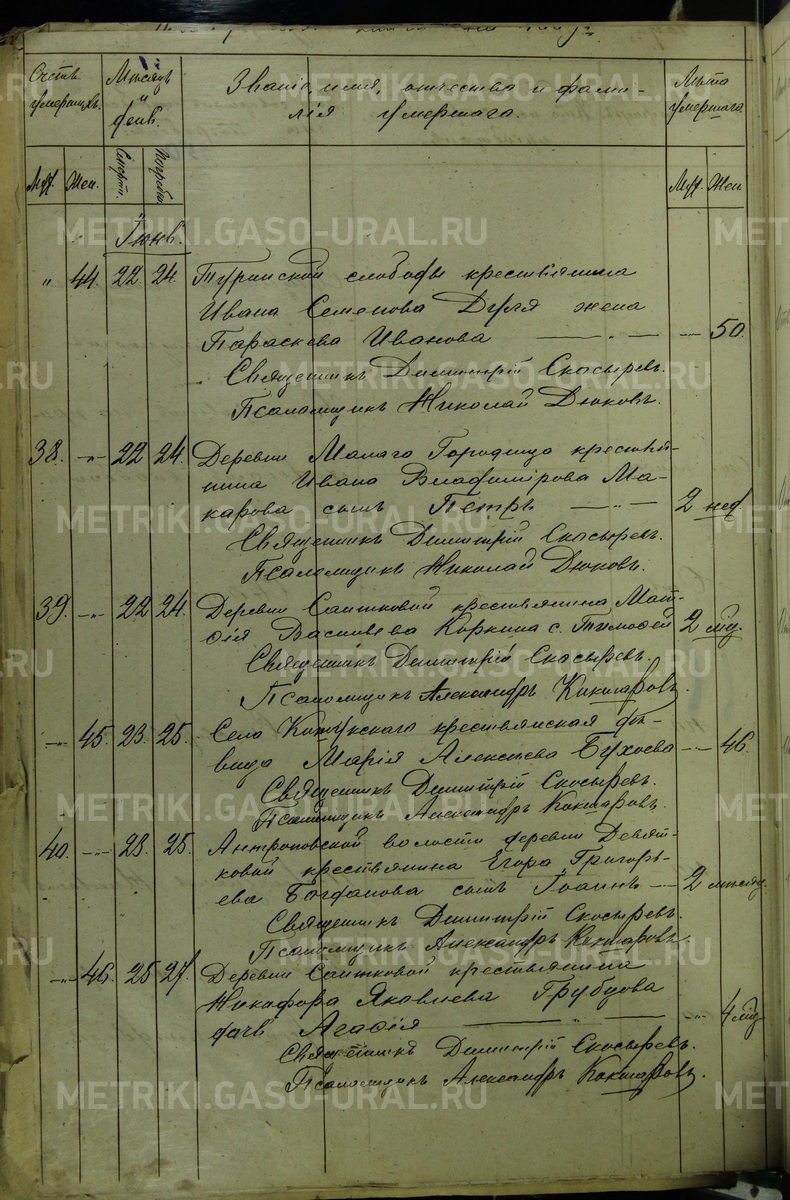 Счетъ умершихъ.
Мѣсяцъ и день.
Званіе, имя, отчество и фами-
лія умершаго.
Лѣта умершаго
Муж. Жен. Смерти. Погребен. Муж. Жен
Іюнь.
" 44. 22 24. Туринской слободы крестьянина
Ивана Семенова Дуля жена
Параскева Иванова — " — — 50.
Священникъ Димитрій Скосыревъ.
Псаломщикъ Николай Дюковъ.
38. — " — 22 24. Деревни Малаго Городища крестья-
нина Ивана Владимірова Ма-
карова сынъ Петръ — " — 2 нед.
Священникъ Димитрій Скосыревъ.
Псаломщикъ Николай Дюковъ.
39. — " — 22 24. Деревни Саитковой крестьянина Мат-
ѳія Васильева Коркина с. Тимоѳей 2 мѣс.
Священникъ Димитрій Скосыревъ.
Псаломщикъ Александръ Кокшаровъ.
— " — 45. 23. 25. Села крестьянская дѣ-
вица Марія Алексѣева Бухоева — " — 46.
Священникъ Димитрій Скосыревъ.
Псаломщикъ Александръ Кокшаровъ.
40. — " — 23. 25. Антроповской волости деревни Девят-
ковой крестьянина Егора Григорь-
ева Богданова сынъ Іоаннъ — 2 мѣсяц.
Священникъ Димитрій Скосыревъ.
Псаломщикъ Александръ Кокшаровъ.
— " — 46. 25 27. Деревни Саитковой крестьянина
Никифора Яковлева Грубцова
дочь Агаѳія — " — — " — 4 мѣс.
Священникъ Димитрій Скосыревъ.
Псаломщикъ Александръ Кокшаровъ.
METRIKI.GASO-URAL.RU